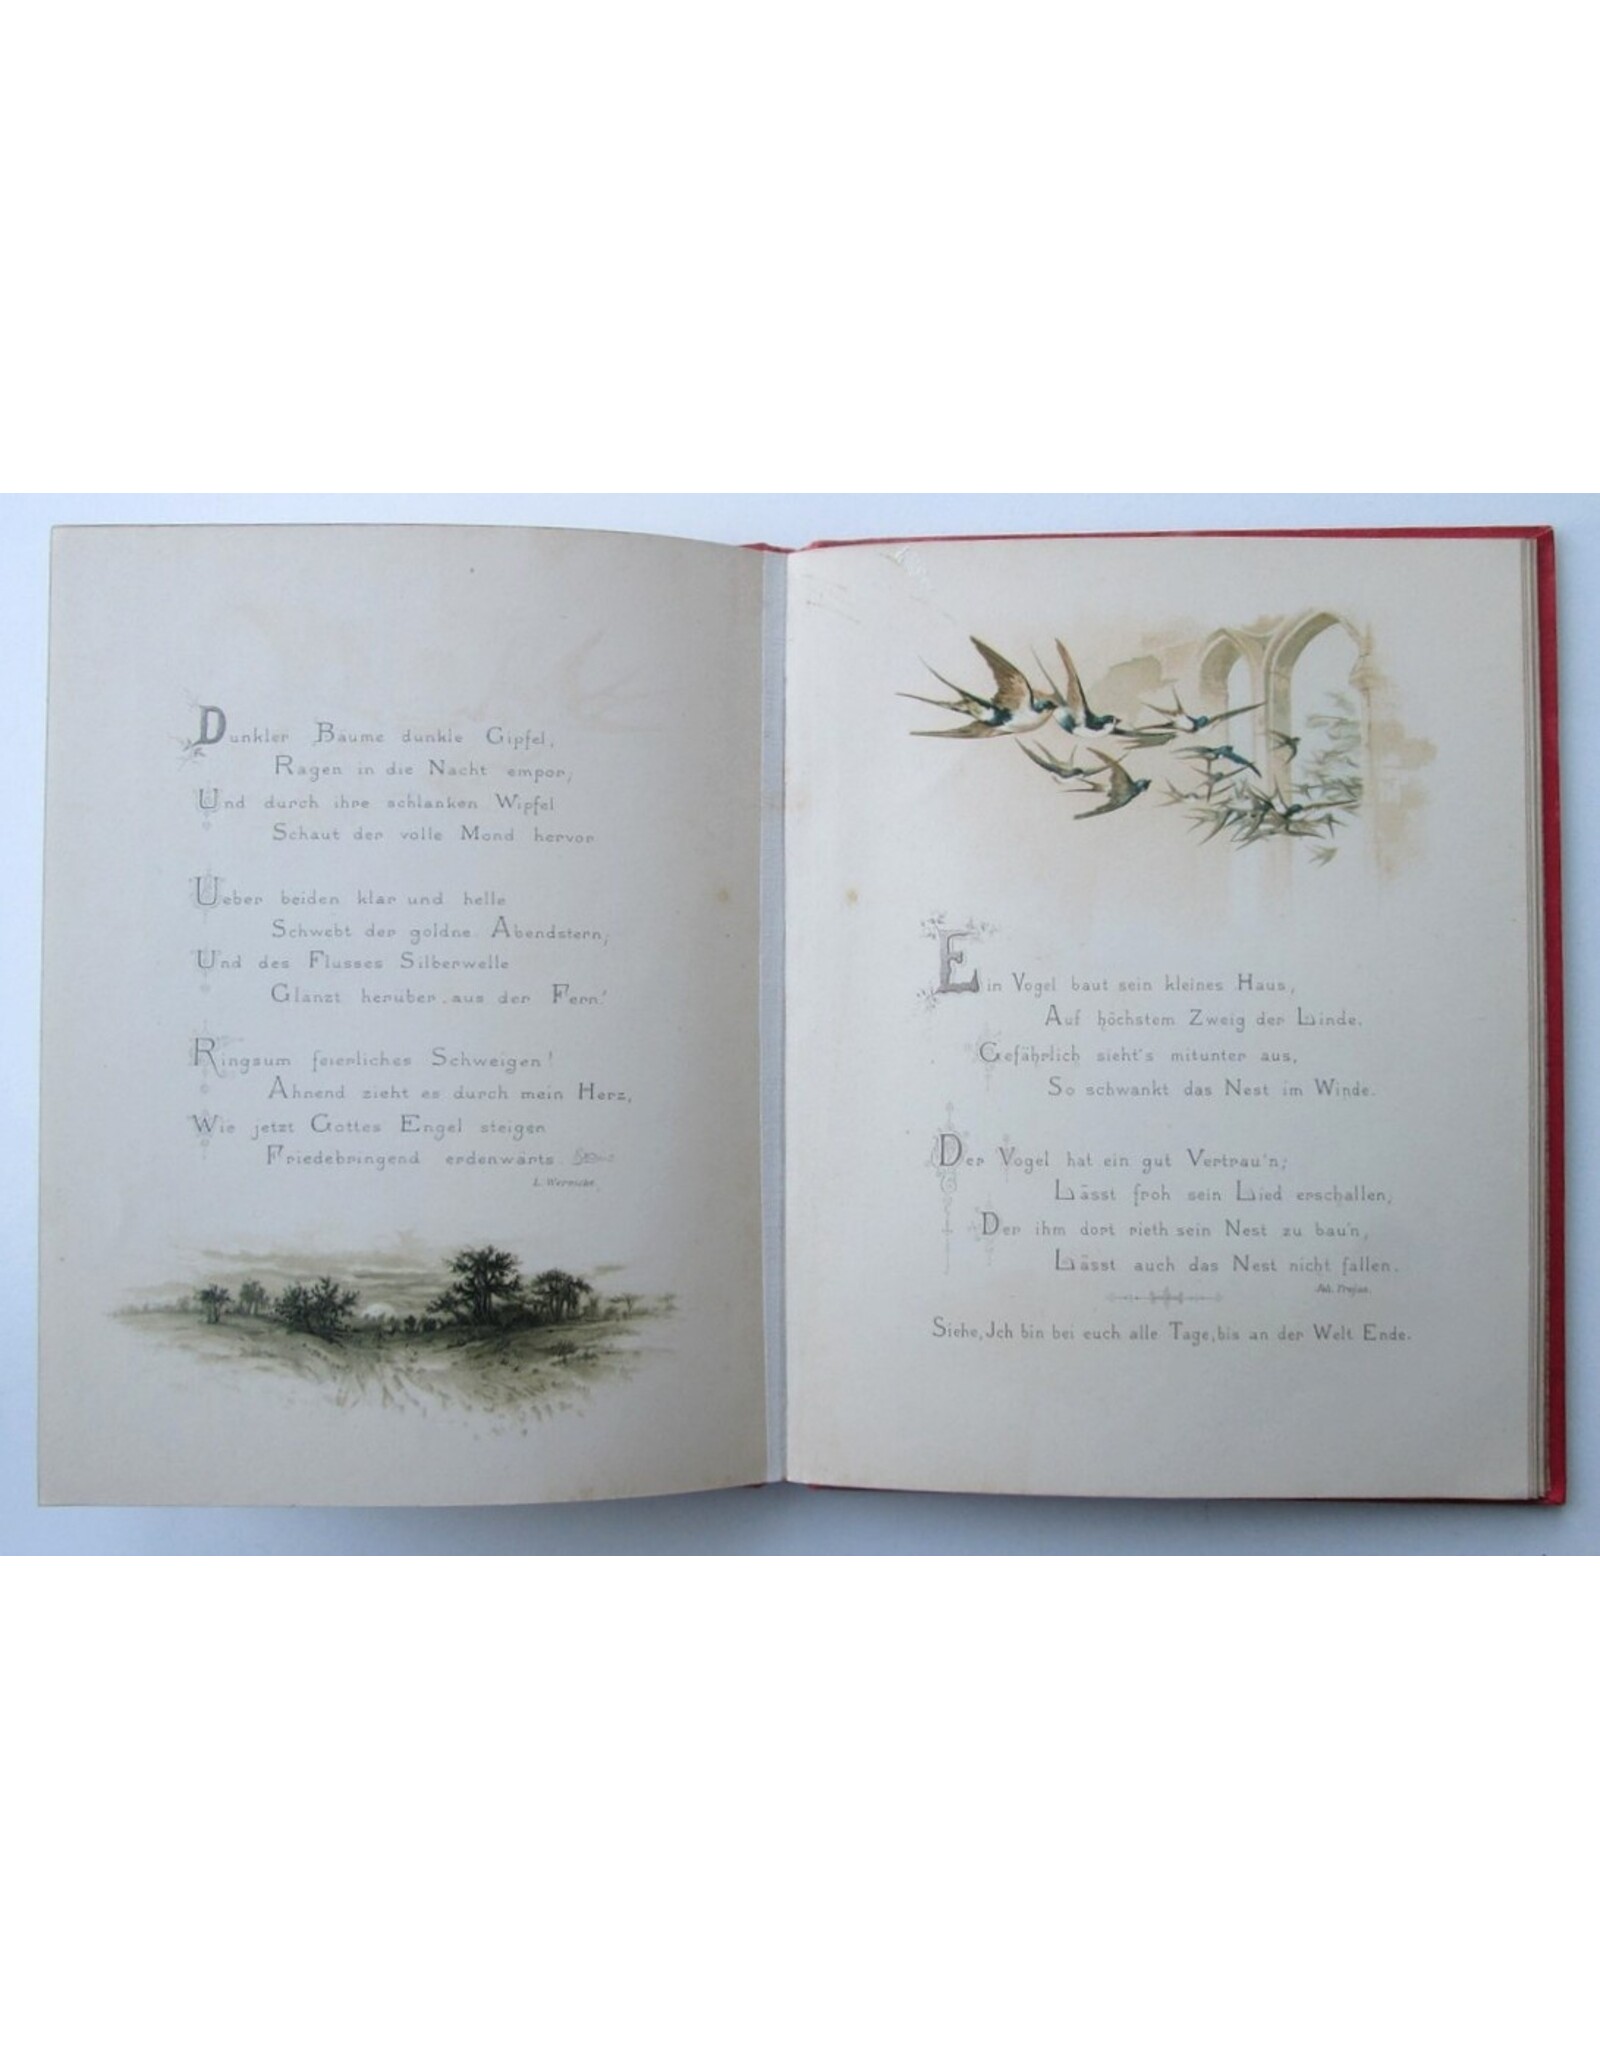 Dunkler Bäume dunkle Gipfel,
Ragen in die Nacht empor,
Und durch ihre schlanken Wipfel
Schaut der volle Mond hervor
Ueber beiden klar und helle
Schwebt der goldne Abendstern,
Und des Flusses Silberwelle
Glänzt herüber aus der Fern!
Ringsum feierliches Schweigen!
Ahnend zieht es durch mein Herz,
Wie jetzt Gottes Engel steigen
Friedebringend erdenwärts
Ein Vogel baut sein kleines Haus,
Auf höchstem Zweig der Linde.
Gefährlich sieht's mitunter aus,
So schwankt das Nest im Winde.
Der Vogel hat ein gut Vertrau'n;
Lässt froh sein Lied erschallen,
Der ihm dort rieth sein Nest zu bau'n,
Lässt auch das Nest nicht fallen.
Joh. Trojan.
Siehe, Jch bin bei euch alle Tage, bis an der Welt Ende.